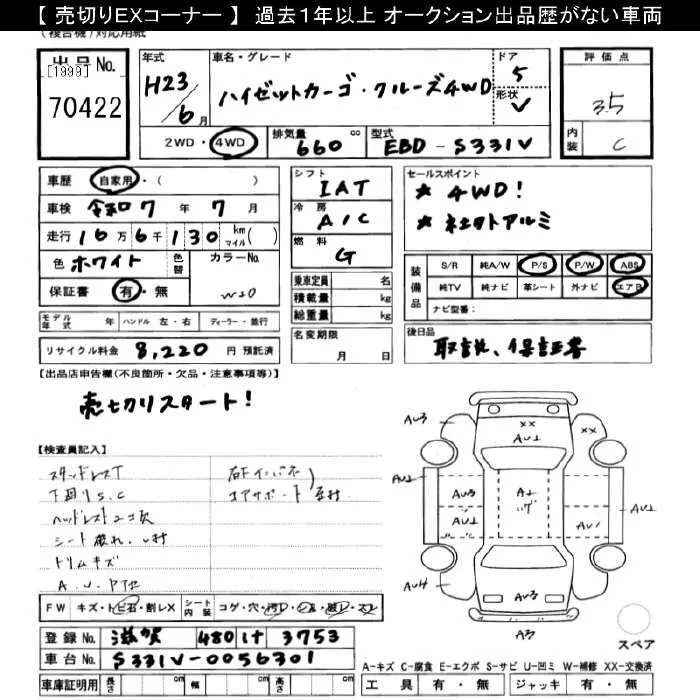 【 売切りEXコーナー 】 過去1年以上 オークション出品歴がない車両
(複合機)対応用紙
出品No.
[1999]
70422
年式
H23/6月
車名・グレード
ハイゼットカーゴ・クルーズ4WD
ドア
5
形状
V
評価点
3.5
内装
C
2WD・4WD
排気量
660 cc
型式
EBD-S331V
車歴 自家用・( )
車検 令和 7 年 7 月
走行 16万6千130 km マイル( )
色 ホワイト
色替
カラーNo.
W20
保証書 有・無
シフト
IAT
冷房
A/C
燃料
G
乗車定員 名
積載量 kg
総重量 kg
セールスポイント
★ 4WD!
★ 社外アルミ
装備品
S/R 純A/W P/S P/W ABS
純TV 純ナビ 革シート 外ナビ エアB
ナビ型番:
モデル年式 年 ハンドル 左・右 ディーラー・並行
名変期限
月 日
後日品
取説、保証書
リサイクル料金 8,220 円 預託済
【出品店申告欄(不良箇所・欠品・注意事項等)】
売切りスタート!
【検査員記入】
スタッドレスT
下回りS.C
ヘッドレスト2コ欠
シート破れ、
トリムキズ
コアサポート
AU3
XX
XX
AU2
AU2
AU3
A2
AU2
AU1
AU2
AU4
AU3
A3
スペア
FW キズ・トビ石・割レX
シート内装 コゲ・穴・
登録No. 滋賀 480 け 3753
車台No. S331V-0056301
車庫証明用 長さ cm 幅 cm 高さ cm
A-キズ C-腐食 E-エクボ S-サビ U-凹ミ W-補修 XX-交換済
工具 有・無 ジャッキ 有・無